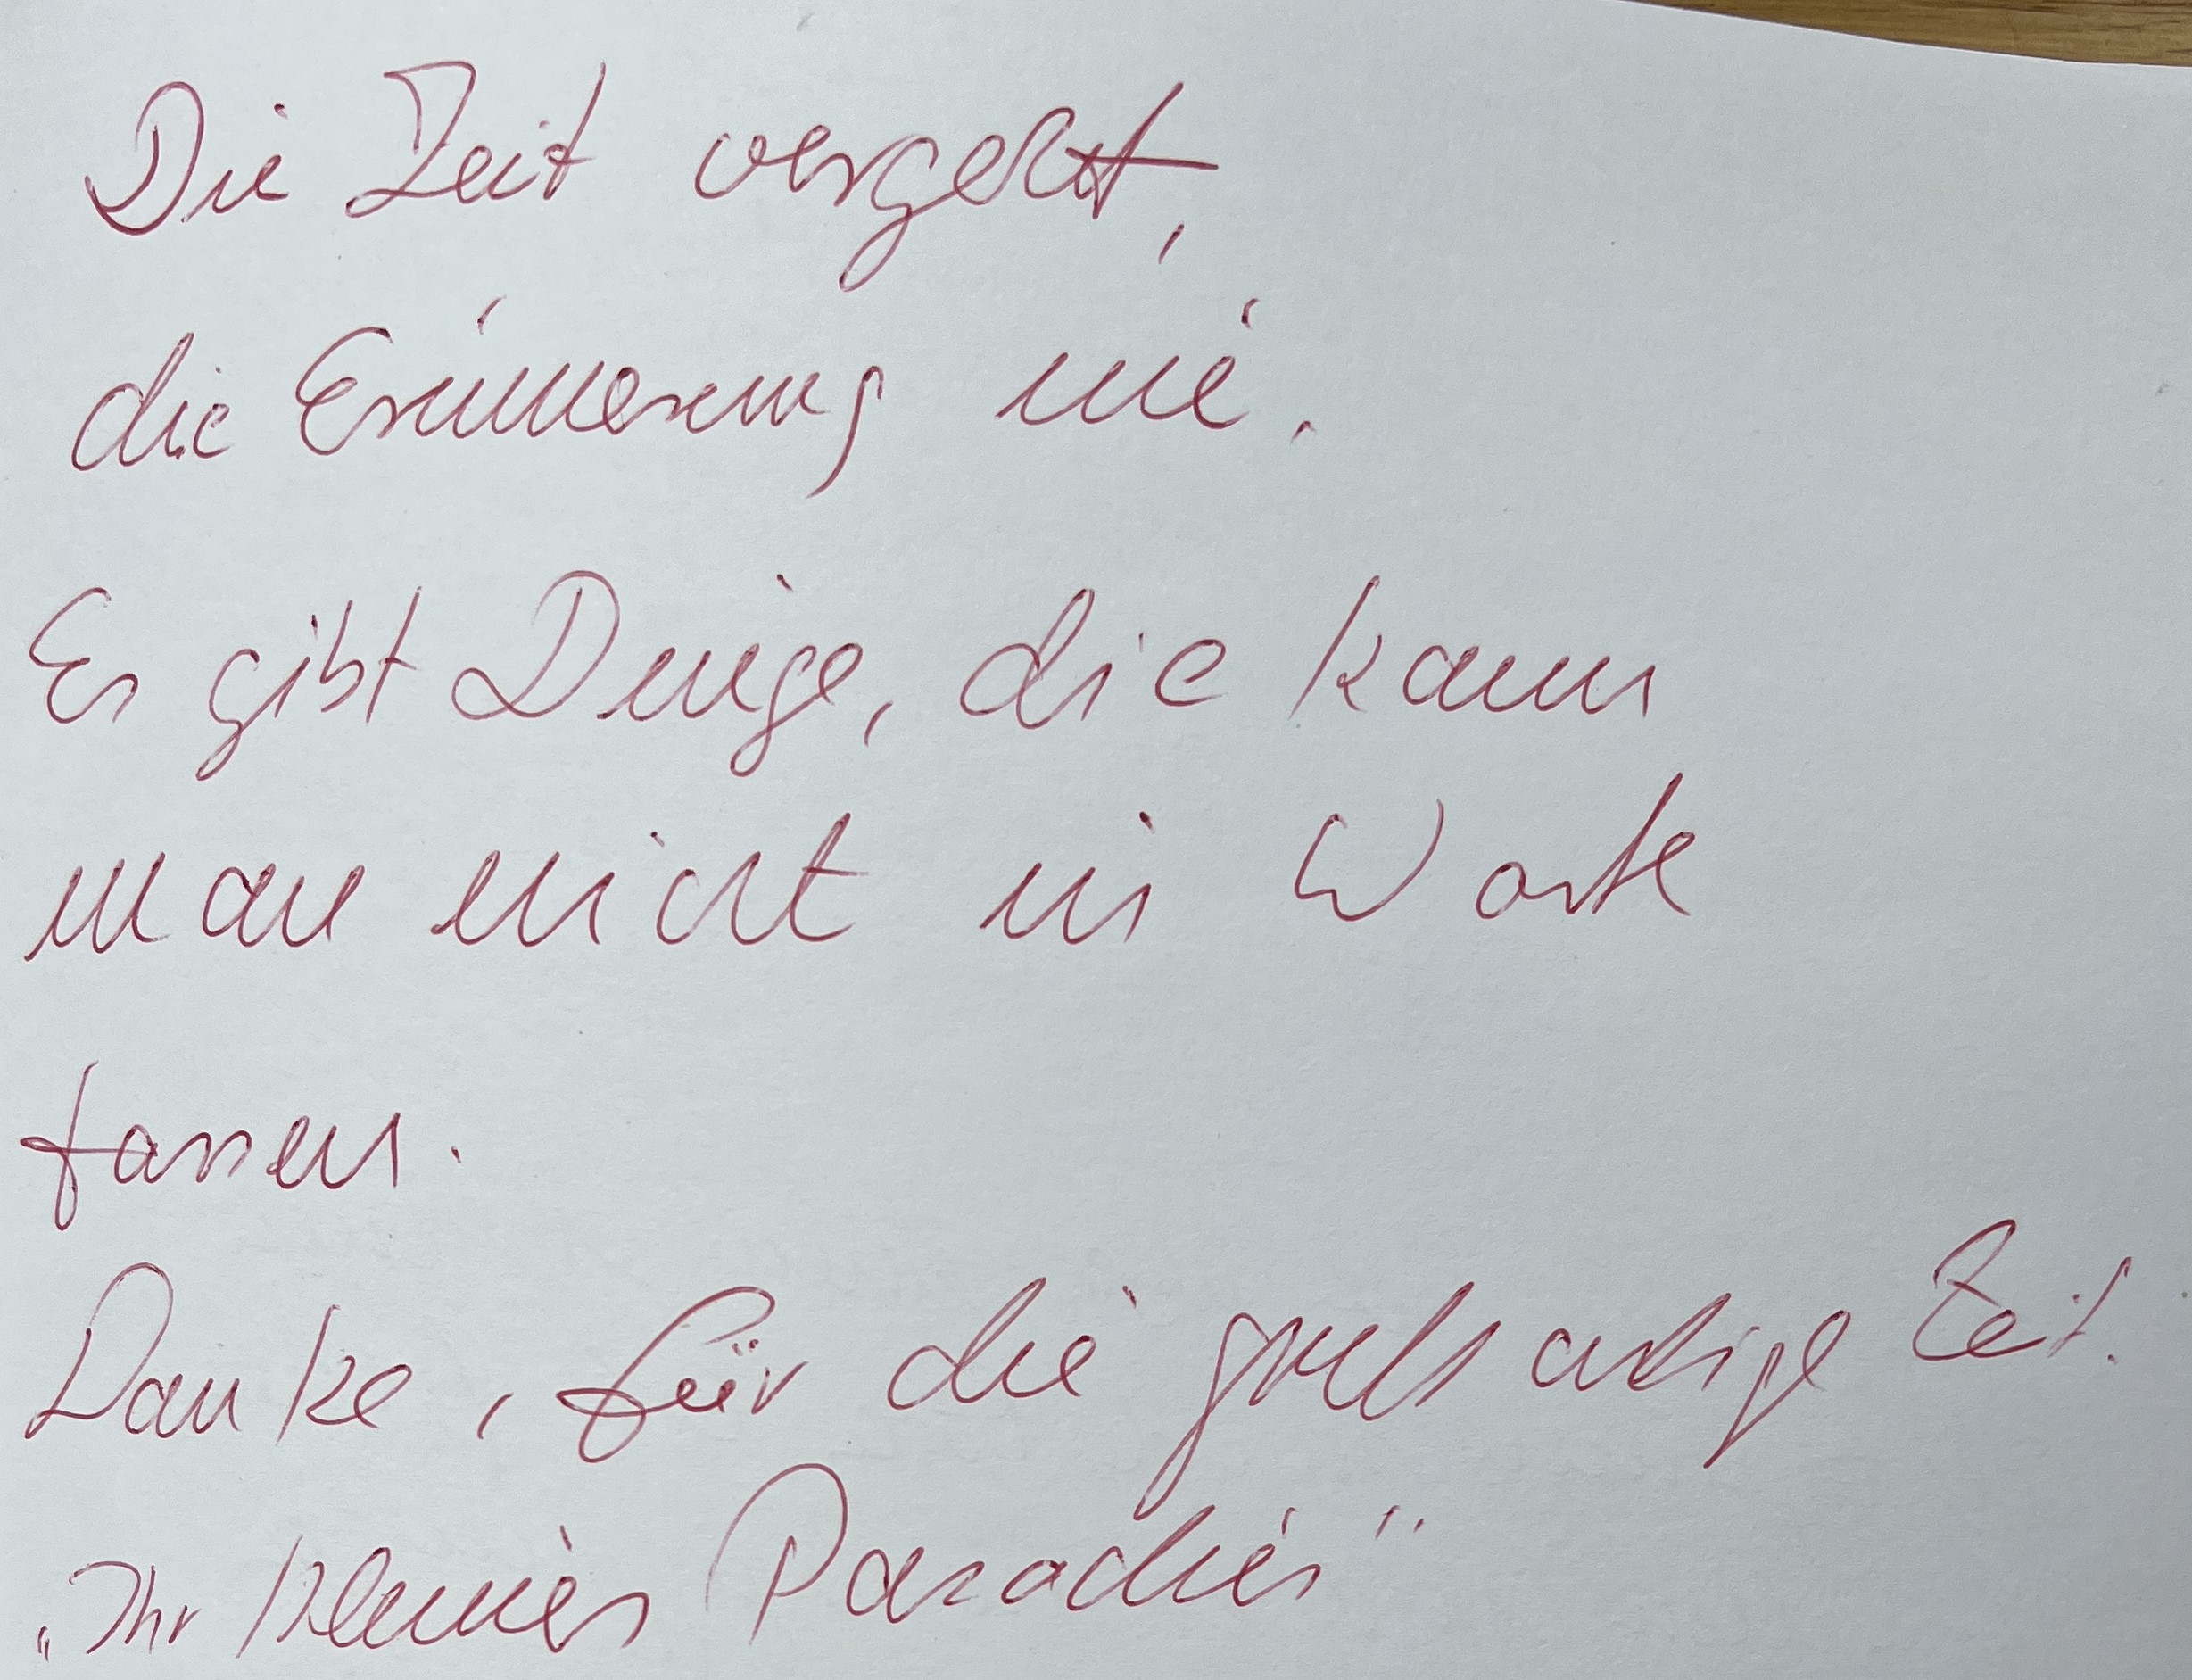 Die Zeit vergeht,
die Erinnerung nie.
Es gibt Dinge, die kann
man nicht in Worte
fassen.
Danke, für die großartige Zeit.
„Ihr kleines Paradies"